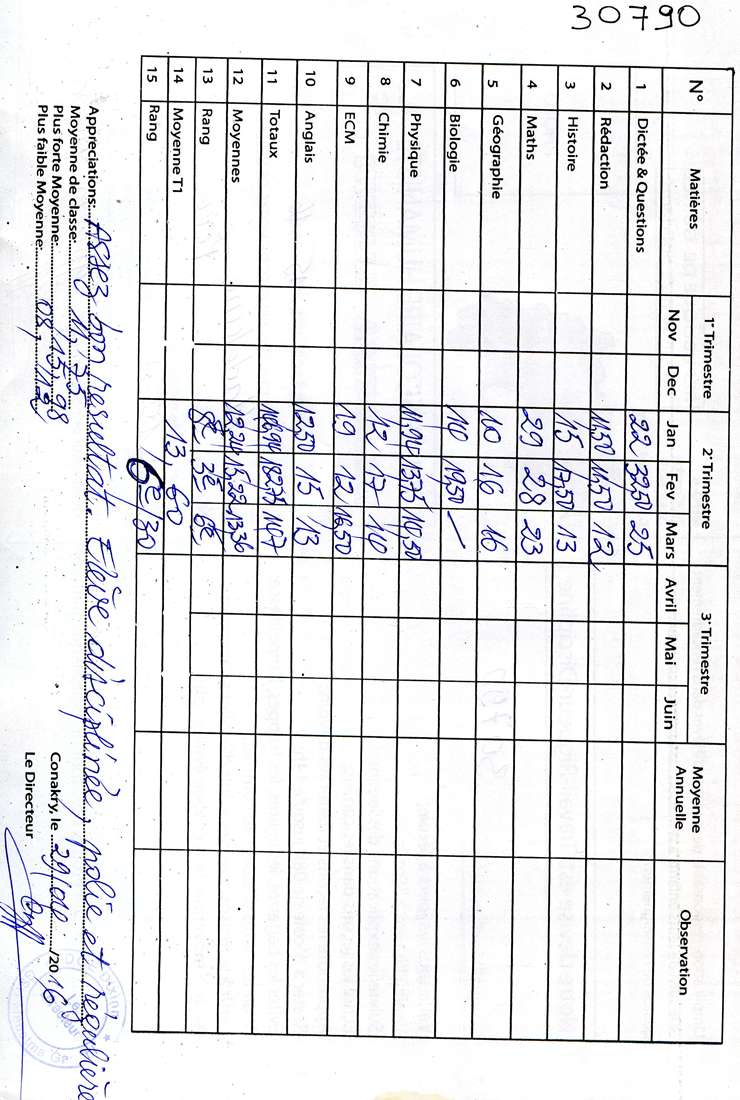 30790
N° Matières 1er Trimestre 2e Trimestre 3e Trimestre Moyenne Annuelle Observation
Nov Dec Jan Fev Mars Avril Mai Juin
1 Dictée & Questions 22 32,50 25
2 Rédaction 11,50 11,50 12
3 Histoire 15 17,50 13
4 Maths 29 28 23
5 Géographie 10 16 16
6 Biologie 10 19,50 /
7 Physique 13,75 10,50
8 Chimie 12 17 10
9 ECM 19 12 16,50
10 Anglais 12,50 15 13
11 Totaux 182,75 147
12 Moyennes 12,24 15,22 13,36
13 Rang 8e 3e 6e
14 Moyenne T1 13,60
15 Rang 6e/30
Appreciations: Assez bon resultat. Elève disciplinée, polie et régulière
Moyenne de classe: 11,73
Plus forte Moyenne: 15,98
Plus faible Moyenne: 08,12
Conakry, le 29/04/2016
Le Directeur